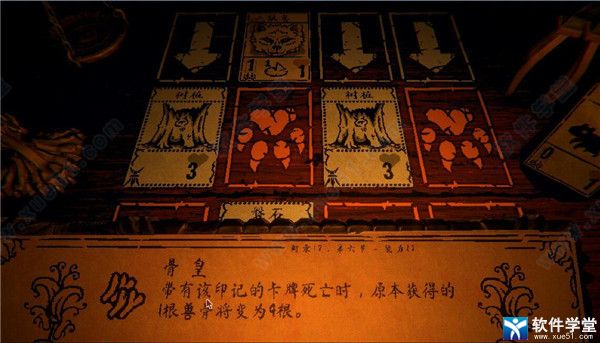 1 1
树桩 树桩
3 3
骨皇
带有该印记的卡牌死亡时，原本获得的
1根兽骨将变为4根。
软件学堂
www.xue51.com